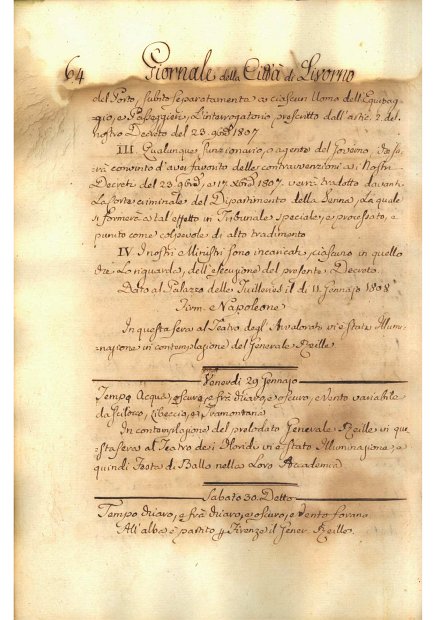 64 Giornale della Città di Livorno
del Porto, subirà separatamente a ciascun Uomo dell'Equipag-
gio, e Passeggieri, l'interrogatorio prescritto dall'artic. 2. del
nostro Decreto del 23. 9bre 1807
III. Qualunque funzionario, o agente del Governo, che sa-
rà convinto d'aver favorito delle contravvenzioni ai Nostri
Decreti del 23. 9bre, e 17. Xbre 1807. verrà tradotto davanti
la Corte criminale del Dipartimento della Senna, la quale
si formerà a tal effetto in Tribunale speciale, e processato, e
punito come colpevole di alto tradimento
IV. I nostri Ministri sono incaricati, ciascuno in quello
che lo riguarda, dell'esecuzione del presente Decreto.
Dato al Palazzo delle Tuilleries, il dì 11. Gennaio 1808
Firm. Napoleone
In questa sera al Teatro degl'Avvalorati vi è stata Illumi-
nazione in contemplazione del Generale Reille
Venerdì 29 Gennaio
Tempo Acqua, oscuro, e frà chiaro, e oscuro, e Vento variabile
da Scilocco, Libeccio, e Tramontana
In contemplazione del prelodato Generale Reille in que-
sta sera al Teatro dei Floridi vi è stato Illuminazione, e
quindi Festa di Ballo nella Loro Accademia
Sabato 30. Detto
Tempo chiaro, e frà chiaro, e oscuro, e Vento
All'alba è partito p Firenze il Gener. Reille.